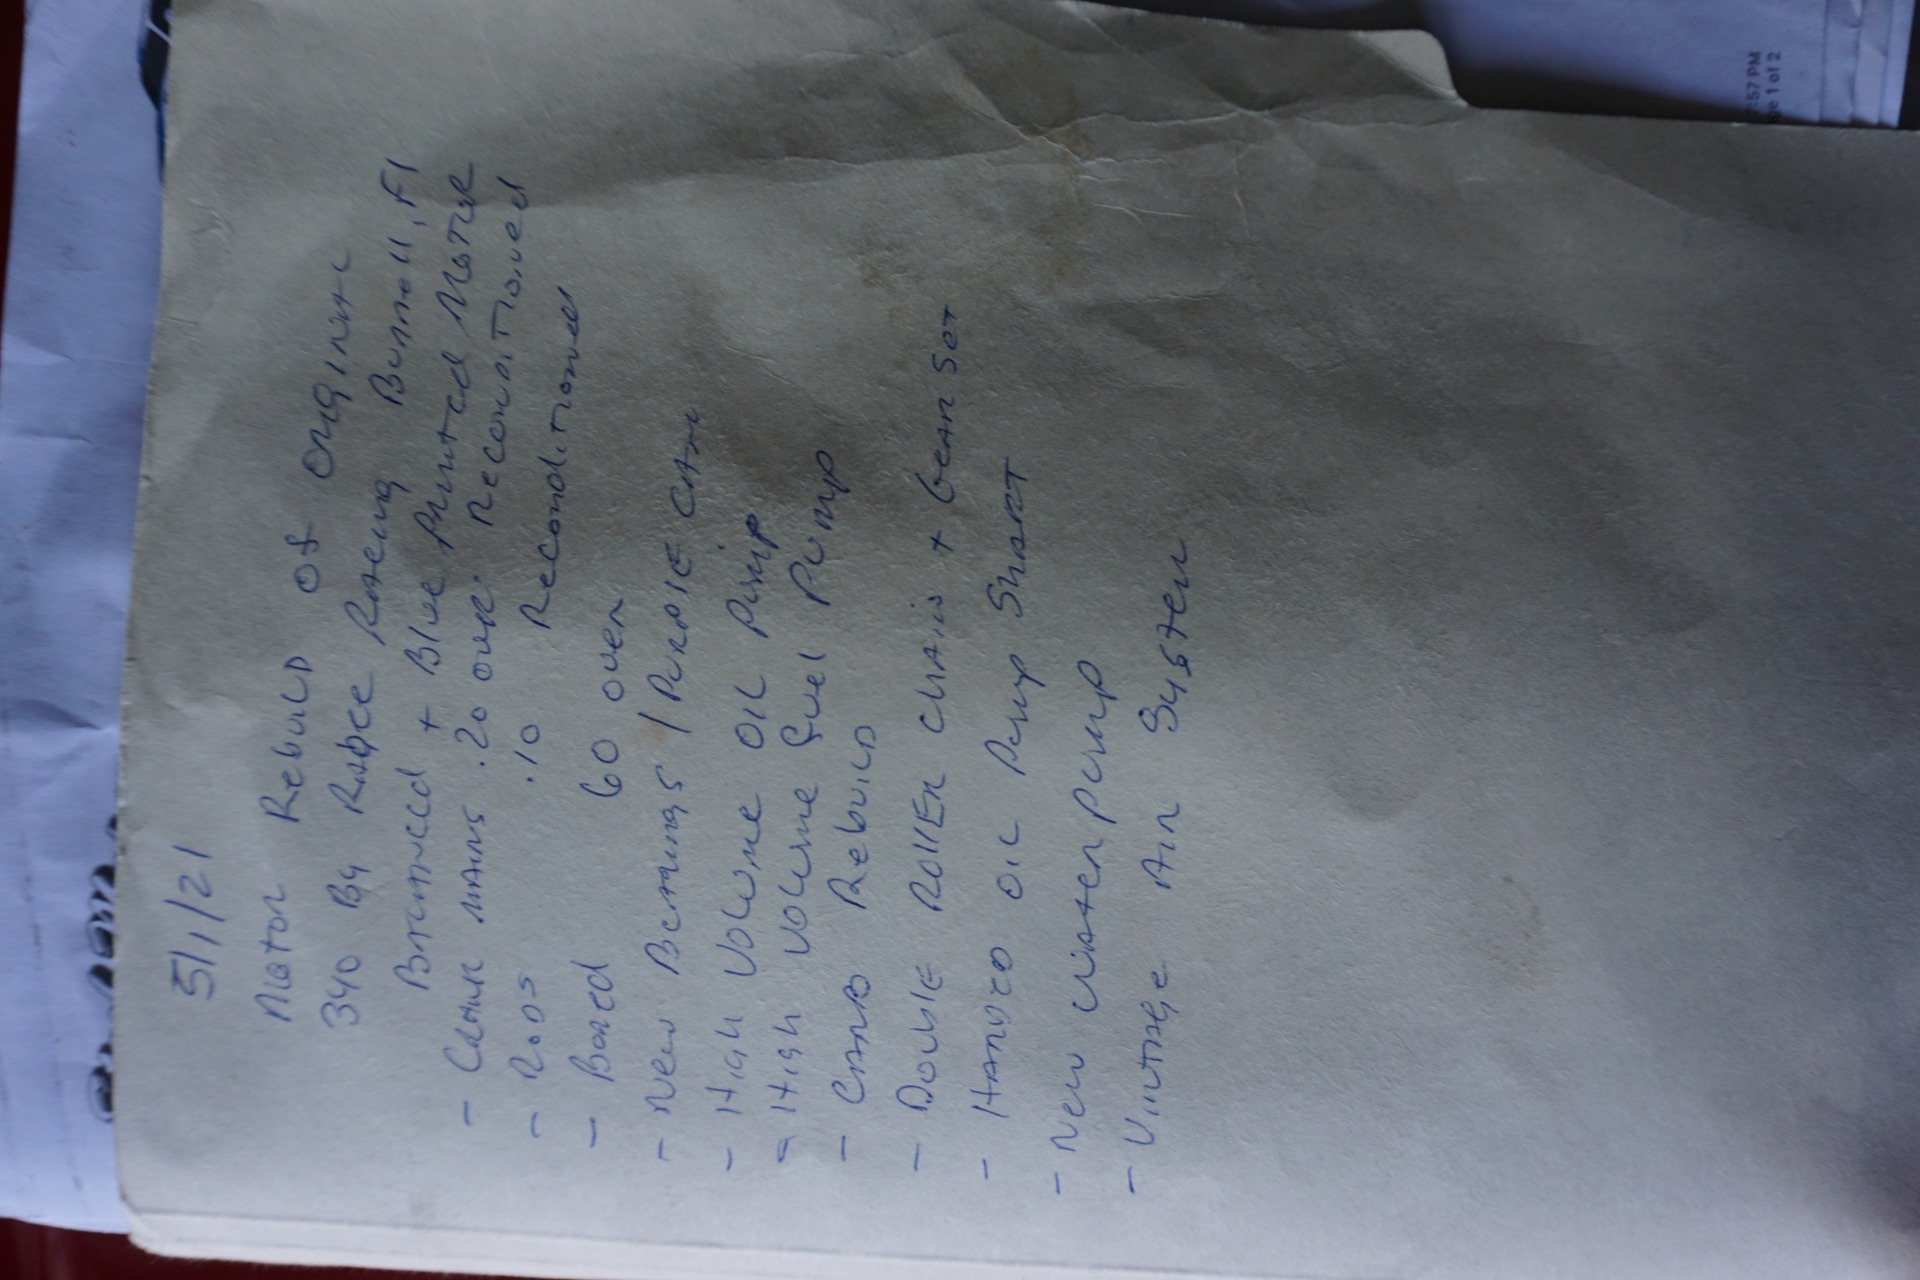 5/1/21
Motor Rebuild of Original
340 By Racing Bunnell, Fl
Balanced + Blue Printed Motor
- Crank mains .20 over Reconditioned
- Rods .10 Reconditioned
- Bored 60 over
- New Bearings / Purple Cam
- High Volume Oil Pump
- High Volume Fuel Pump
- Carb Rebuild
- Double Roller Chain + Gear Set
- Hard Oil Pump Shaft
- New Water Pump
- Vintage Air System
:57 PM
1 of 2